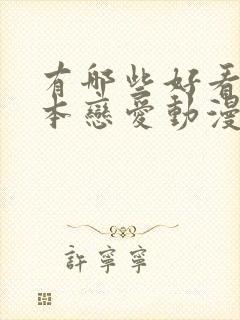 有哪些好看
本戀愛動漫
許寧寧